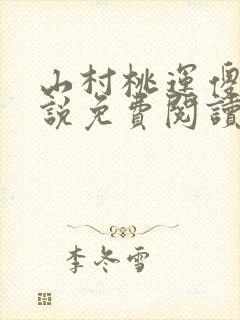 山村桃運傻
說免費閱讀
李冬雪